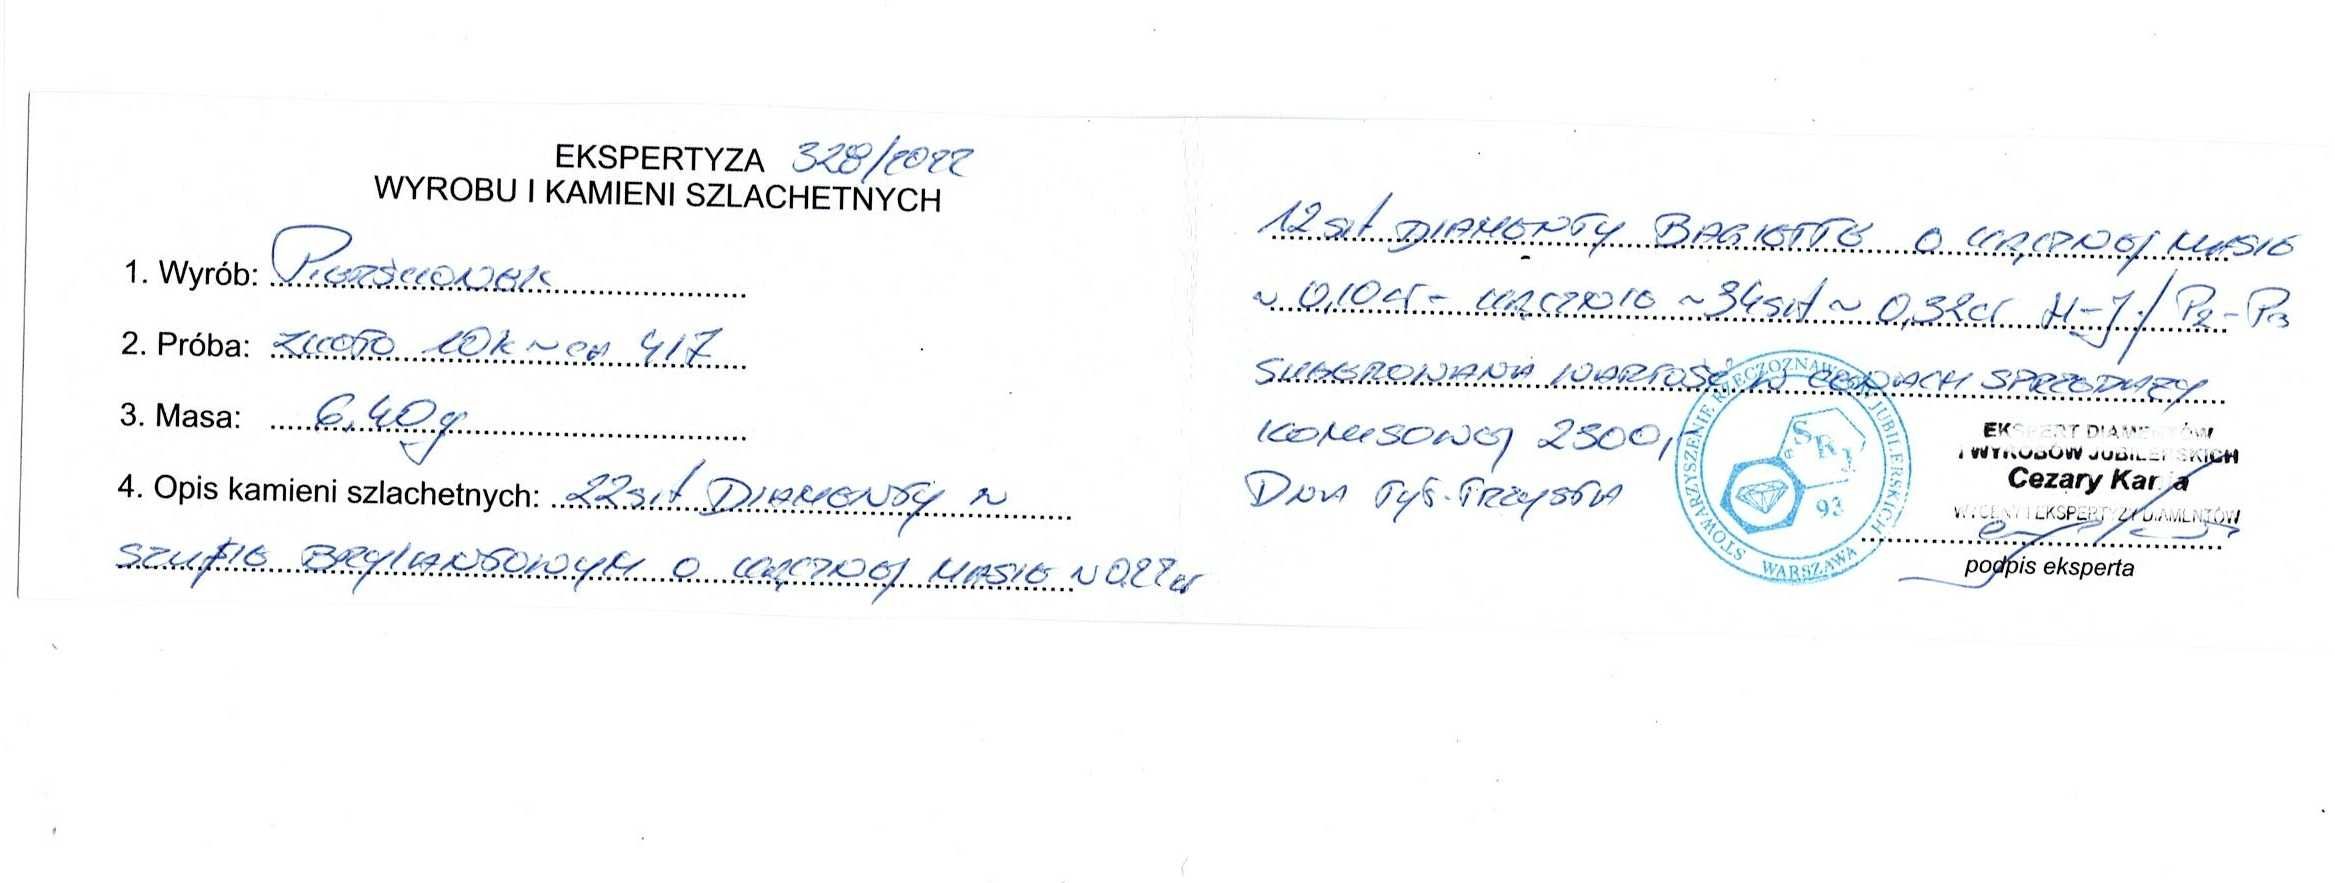 EKSPERTYZA 328/2022
WYROBU I KAMIENI SZLACHETNYCH
1. Wyrób: PIERŚCIONEK
2. Próba: ZŁOTO 10K ~ 417
3. Masa: 6,40g
4. Opis kamieni szlachetnych: 22szt DIAMENTY W
SZLIFIE BRYLANTOWYM O ŁĄCZNEJ MASIE ~ 0.22ct
12szt DIAMENTY BAGIETTE O ŁĄCZNEJ MASIE
~ 0,10ct - ŁĄCZNIE ~34szt ~ 0,32ct H-J / P2-P3
SUGEROWANA WARTOŚĆ W CENACH SPRZEDAŻY
KOMISOWEJ 2300,-
DWA TYŚ. TRZYSTA
STOWARZYSZENIE RZECZOZNAWCÓW JUBILERSKICH
WARSZAWA
SRJ
93
EKSPERT DIAMENTÓW
I WYROBÓW JUBILERSKICH
Cezary Kania
WYCENY I EKSPERTYZY DIAMENTÓW
podpis eksperta